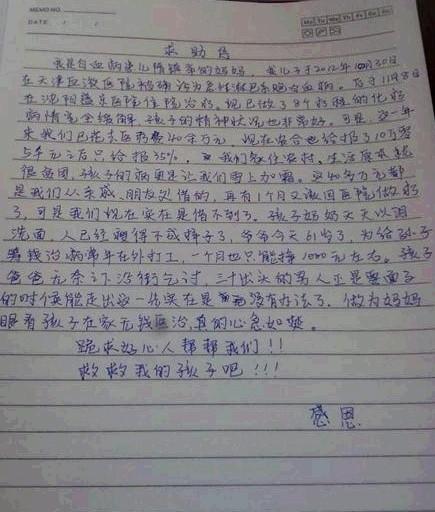 MEMO NO.
DATE / /
Mo Tu We Th Fr Sa Su
求助信
我是白血病患儿 的妈妈,我儿子于2012年10月30日
在天津血液医院被确诊为急性淋巴系白血病。于11月8日
在沈阳盛京医院住院治疗。现已做了9个疗程的化疗
病情完全缓解,孩子的精神状况也非常好。可是,这一年
来我们已花去医药费40余万元,现在农合也给报了10万零
5千元之后只给报35%,我们家住农村,生活原本就
很贫困,孩子的病更是让我们雪上加霜。这40多万元都
是我们从亲戚、朋友处借的,再有1个月又该回医院做
了,可是我们现在实在是借不到了。孩子奶奶天天以泪
洗面,人已经瘦得不成样子了,爷爷今天61岁了,为给孙子
钱治病常年在外打工,一个月也只能挣1000元左右。孩子
爸爸无奈之下沿街乞讨,三十出头的男人正是要面子
的时候能走出这一步实在是 没有办法了,做为妈妈
眼看孩子在家无钱医治,真的心急如焚。
跪求好心人帮帮我们!!
救救我的孩子吧!!!
感恩